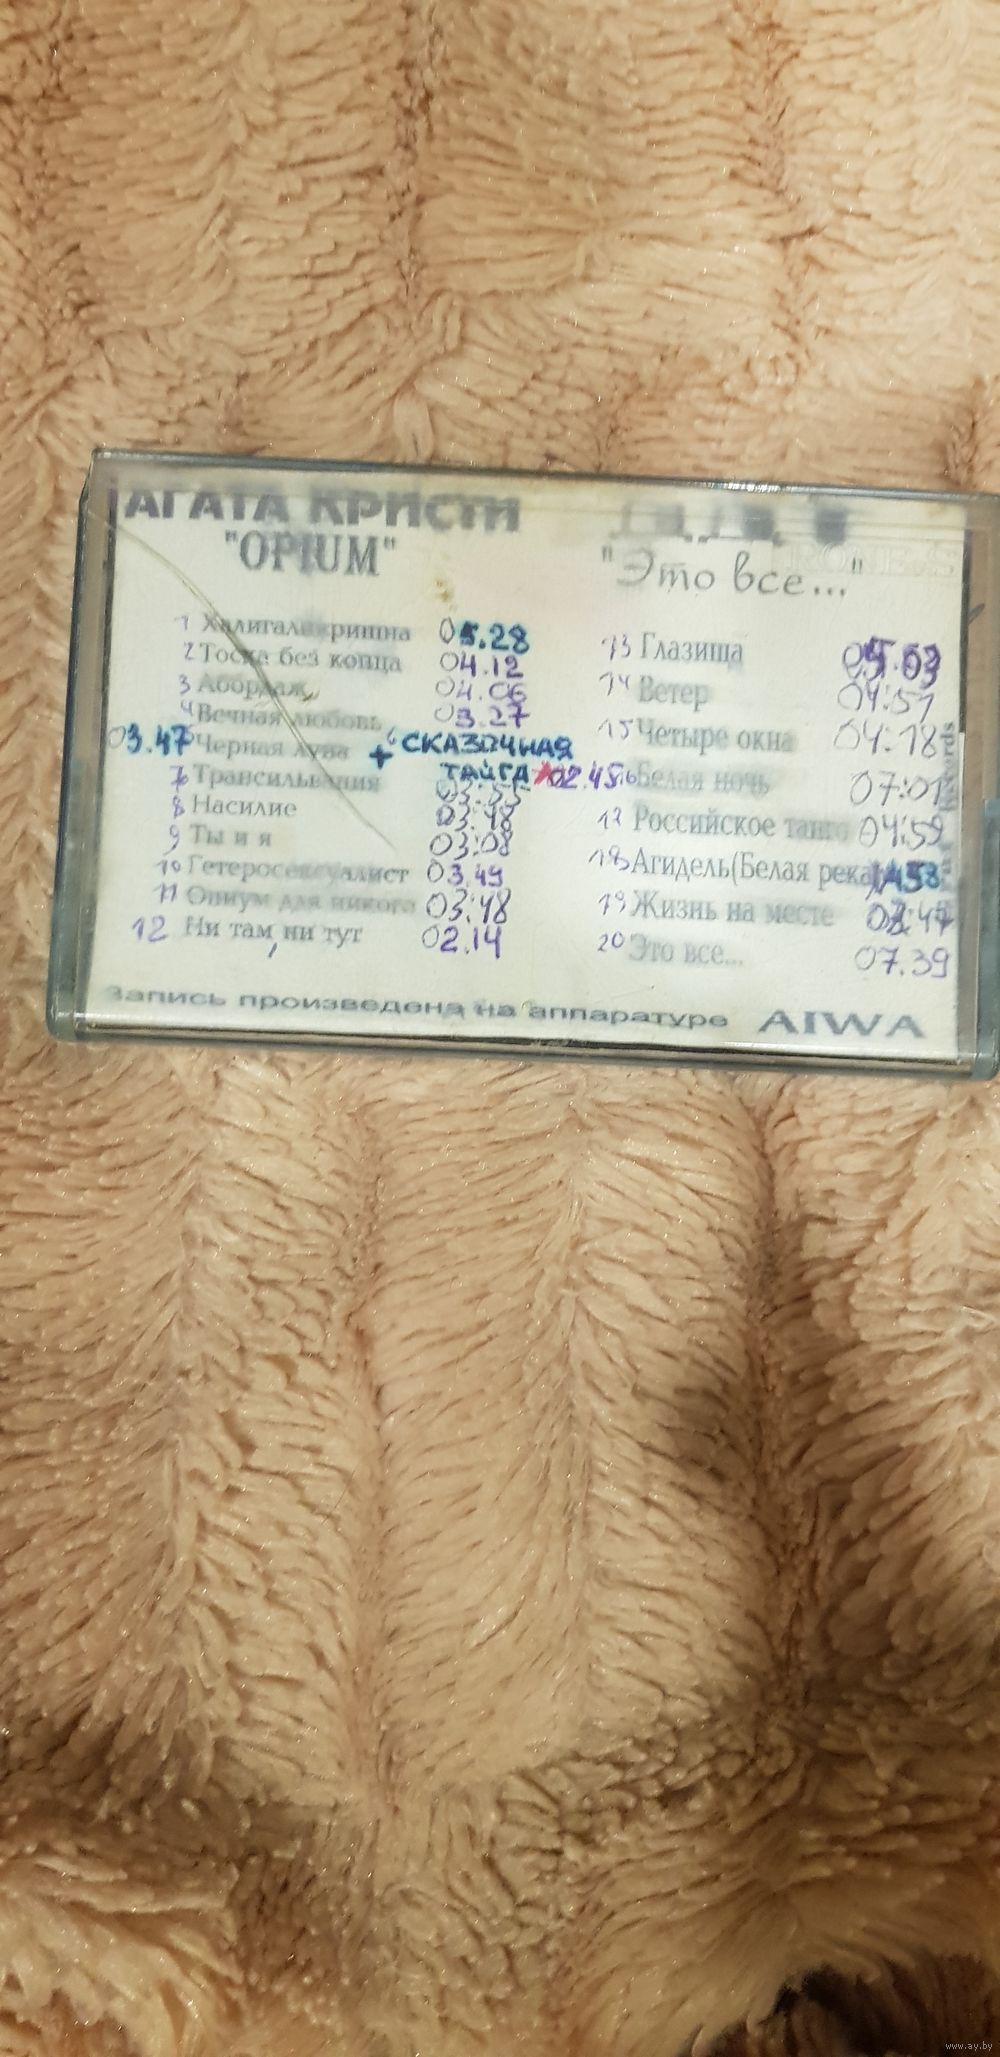 АГАТА КРИСТИ
"OPIUM"
1 Халигаликришна 05.28
2 Тоска без конца 04.12
3 Абордаж 04.06
4 Вечная любовь 03.27
03.47 Черная луна + 6 СКАЗОЧНАЯ
ТАЙГА 02.45
7 Трансильвания 03:55
8 Насилие 03:48
9 Ты и я 03:08
10 Гетеросексуалист 03.49
11 Опиум для никого 03:48
12 Ни там, ни тут 02.14
ДДТ
"Это все..."
13 Глазища 05.03
14 Ветер 04:51
15 Четыре окна 04:18
16 Белая ночь 07:01
17 Российское танго 04:59
18 Агидель(Белая река)
19 Жизнь на месте
20 Это все... 07.39
Records
Запись произведена на аппаратуре AIWA
www.ay.by